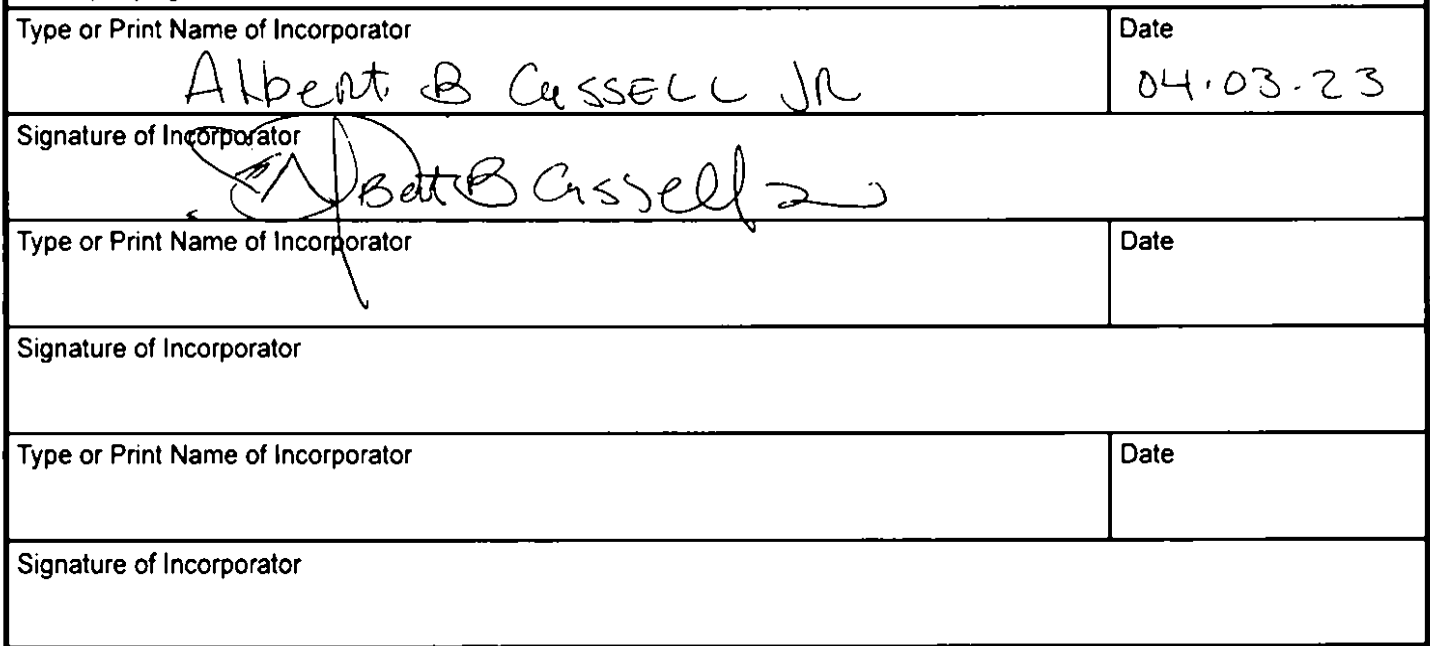 Type or Print Name of Incorporator
Date
Albert B CassELL JR
04.03.23
Signature of Incorporator
Albert B Cassell Jr
Type or Print Name of Incorporator
Date
Signature of Incorporator
Type or Print Name of Incorporator
Date
Signature of Incorporator